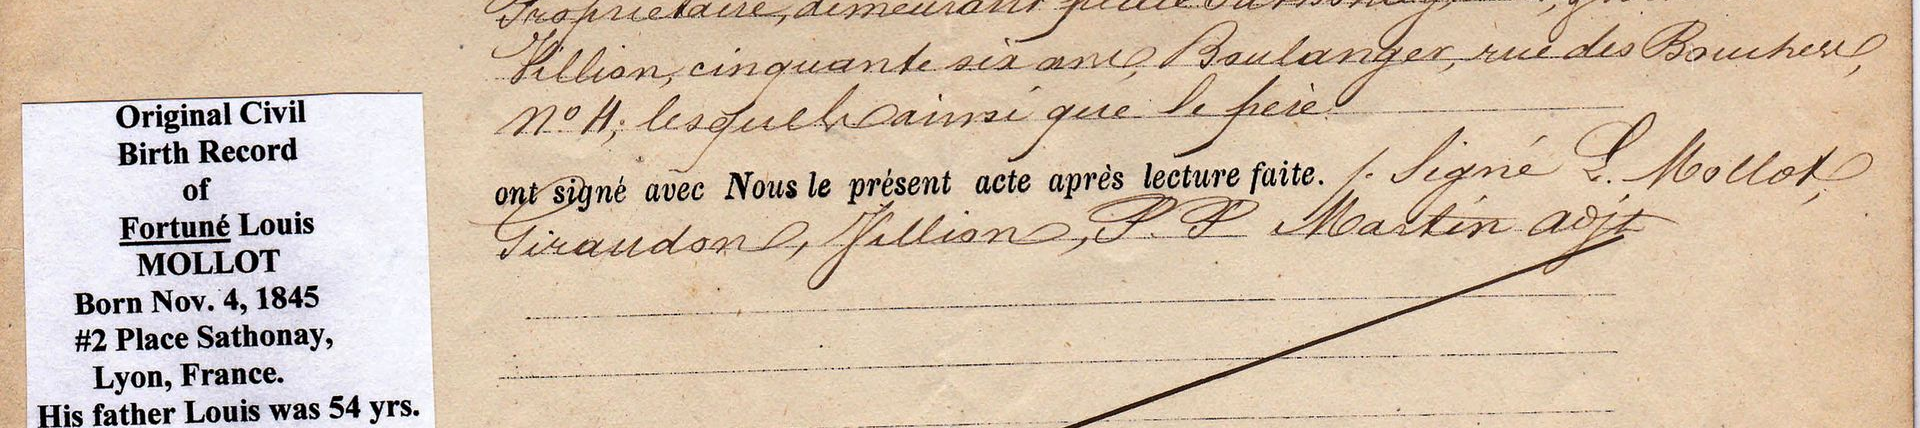 Original Civil
Birth Record
of
Fortuné Louis
MOLLOT
Born Nov. 4, 1845
#2 Place Sathonay,
Lyon, France.
His father Louis was 54 yrs.
Propriétaire, demeurant place Sathonay,
Villion, cinquante six ans, Boulanger, rue des Bouchers,
No 4; lesquels ainsi que le père
ont signé avec Nous le présent acte après lecture faite. /. Signé L. Mollot,
Giraudon, Villion, P. P Martin adjt